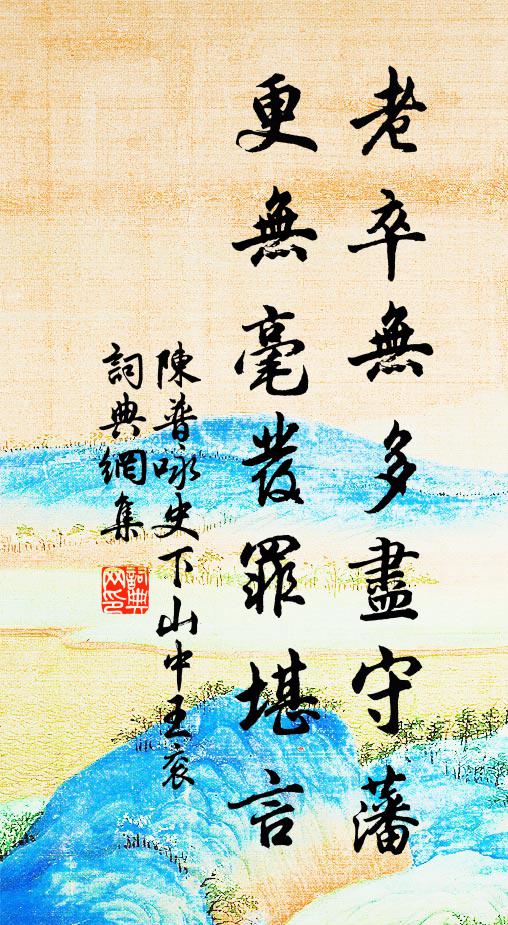 老卒無多盡守藩
更無毫發罪堪言
陳普咏史下山中王衮
詞典網集
詞典網印